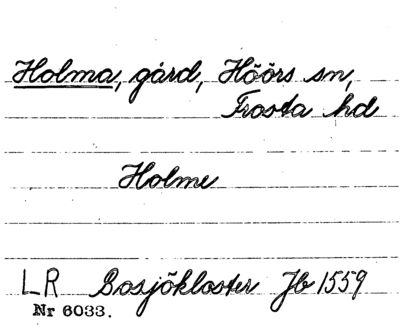 Holma, gård, Höörs sn,
Frosta hd
Holme
LR Bosjökloster Jb 1559
Nr 6033.